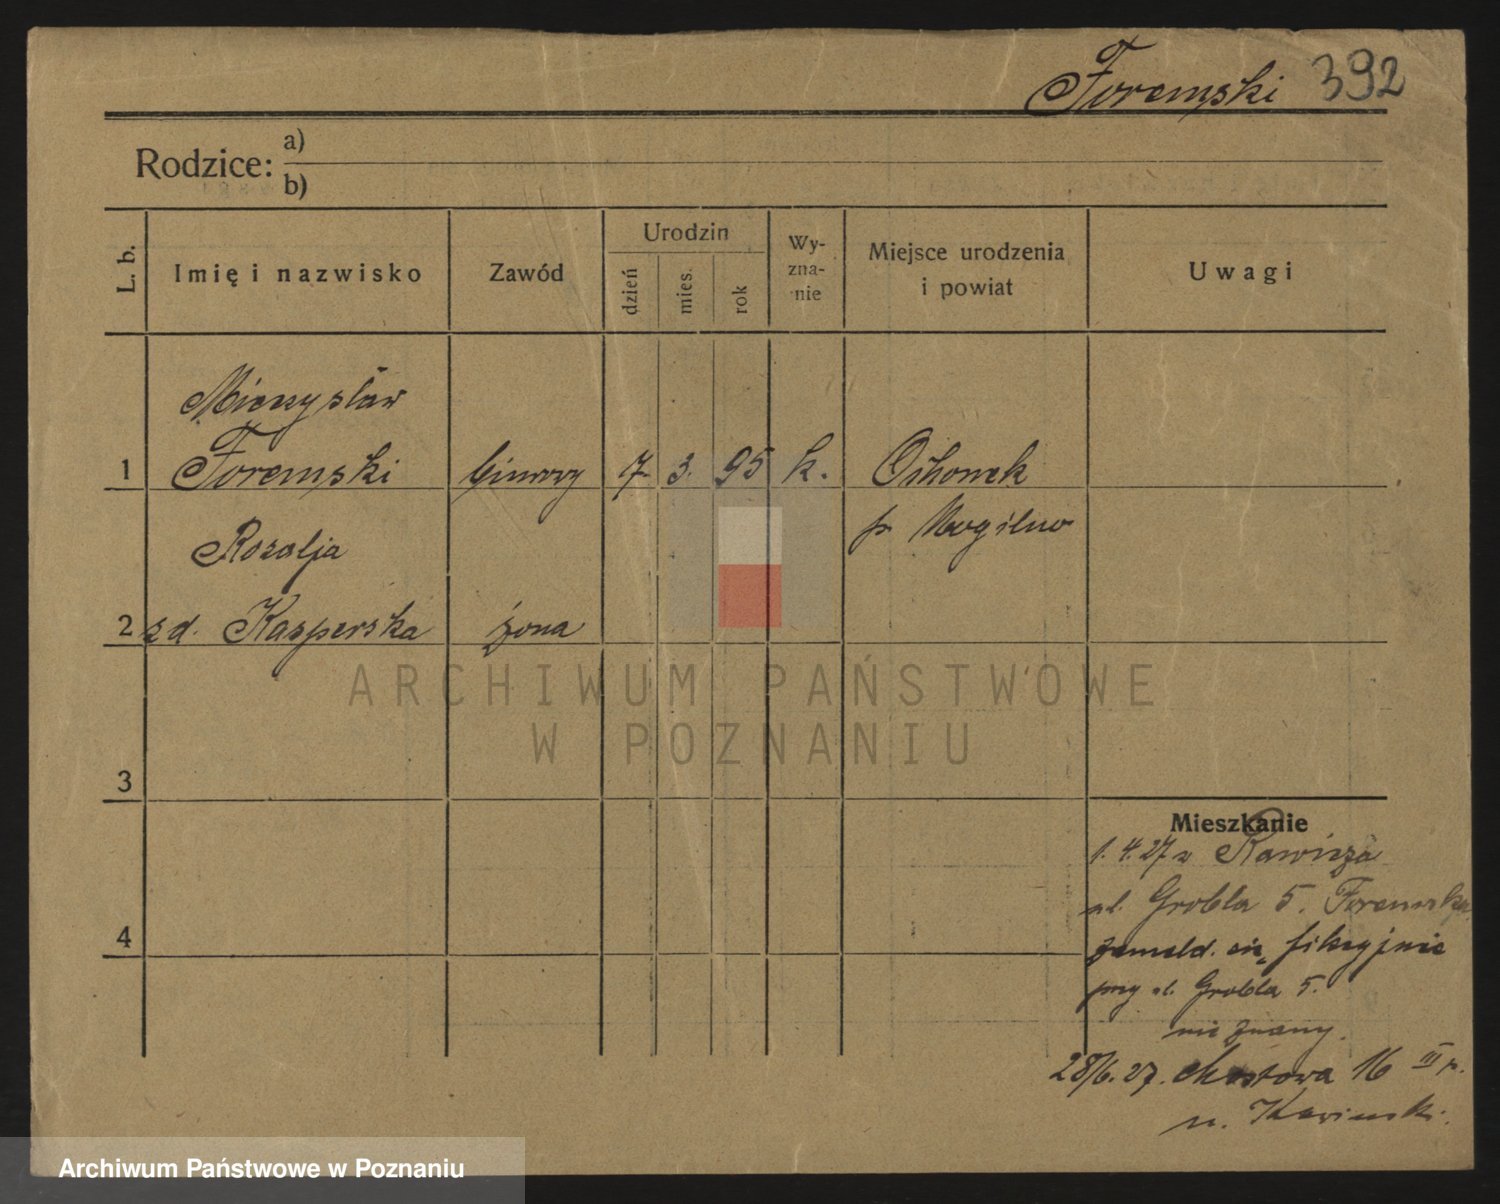 Foremski 392
Rodzice: a)
b)
L. b.
Imię i nazwisko
Zawód
Urodzin
dzień
mies.
rok
Wy-
zna-
nie
Miejsce urodzenia
i powiat
Uwagi
Mieczysław
1 Foremski 7 3. 95 k.
p. Mogilno
Rozalja
2 zd. Kasperska żona
ARCHIWUM PAŃSTWOWE
W POZNANIU
3
Mieszkanie
1. 4. 27 z Rawicza
ul. Grobla 5.
4
zameld. się fikcyjnie
przy ul. Grobla 5.
nie znany.
28/6. 27. Mostowa 16 III p.
Archiwum Państwowe w Poznaniu